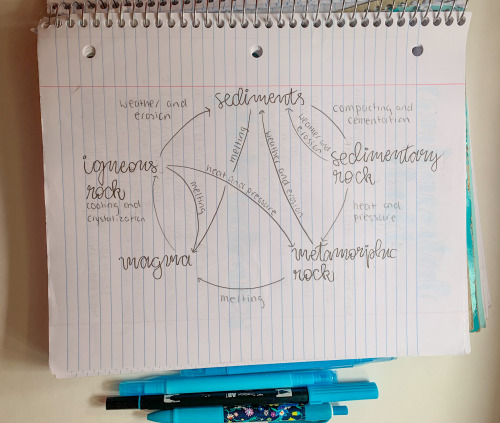 sediments
weather and
erosion
compacting and
cementation
melting
weather and erosion
weather and
erosion
igneous
rock
sedimentary
rock
heat and pressure
melting
cooling and
crystalization
heat and
pressure
magma
metamorphic
rock
melting
ABT